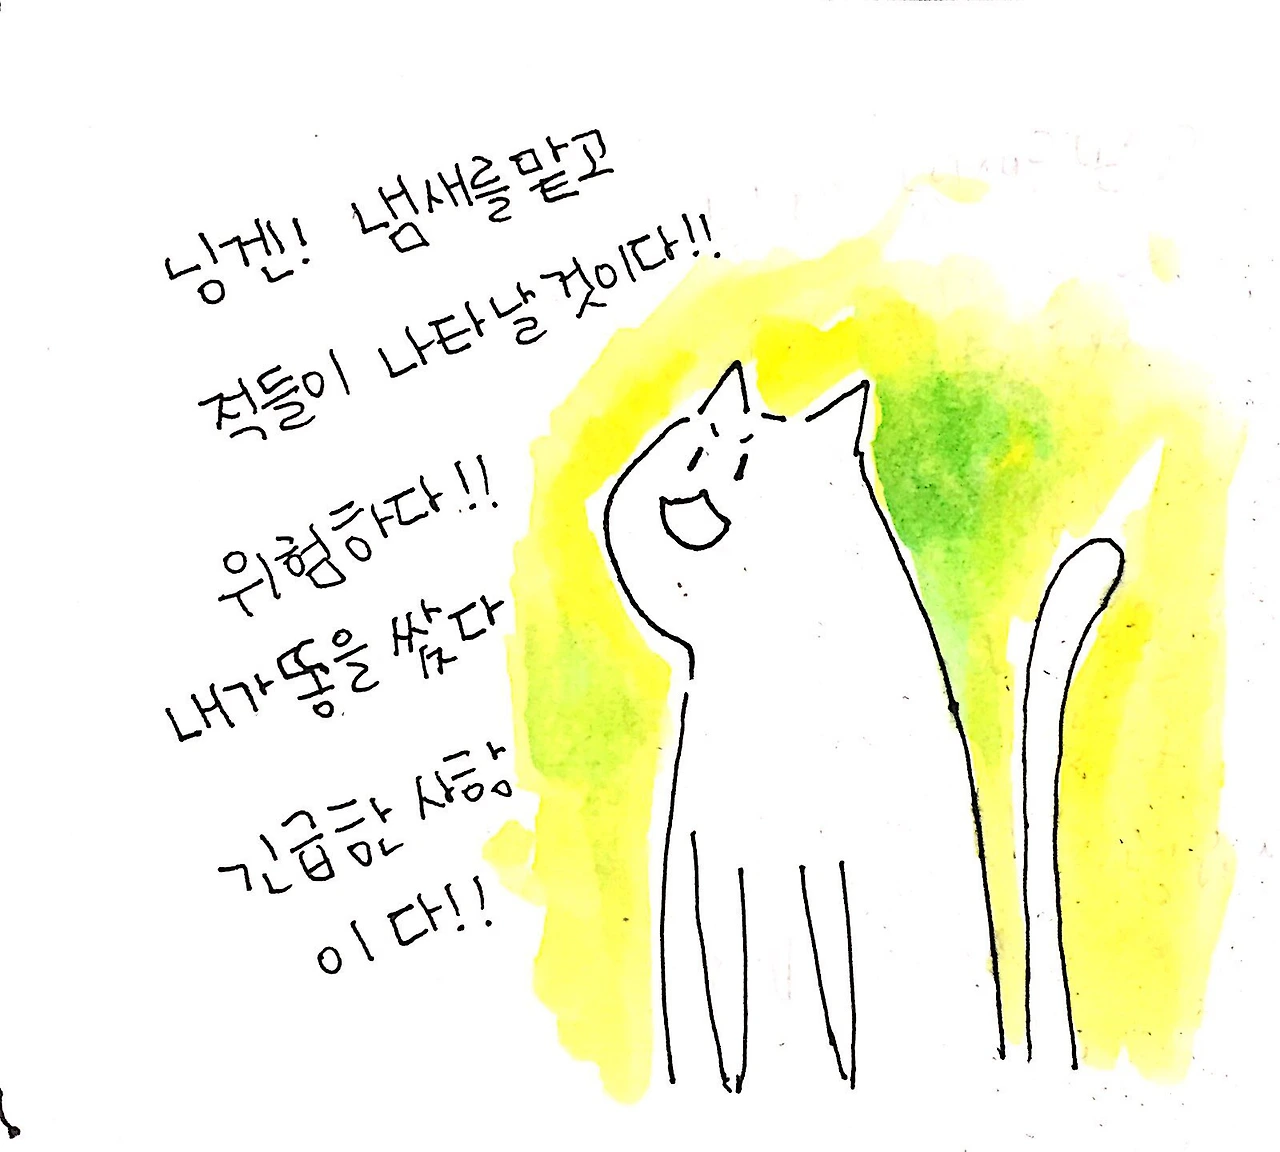 닝겐! 냄새를맡고
적들이 나타날것이다!!
위험하다!!
내가똥을 쌌다
긴급한 상황
이다!!